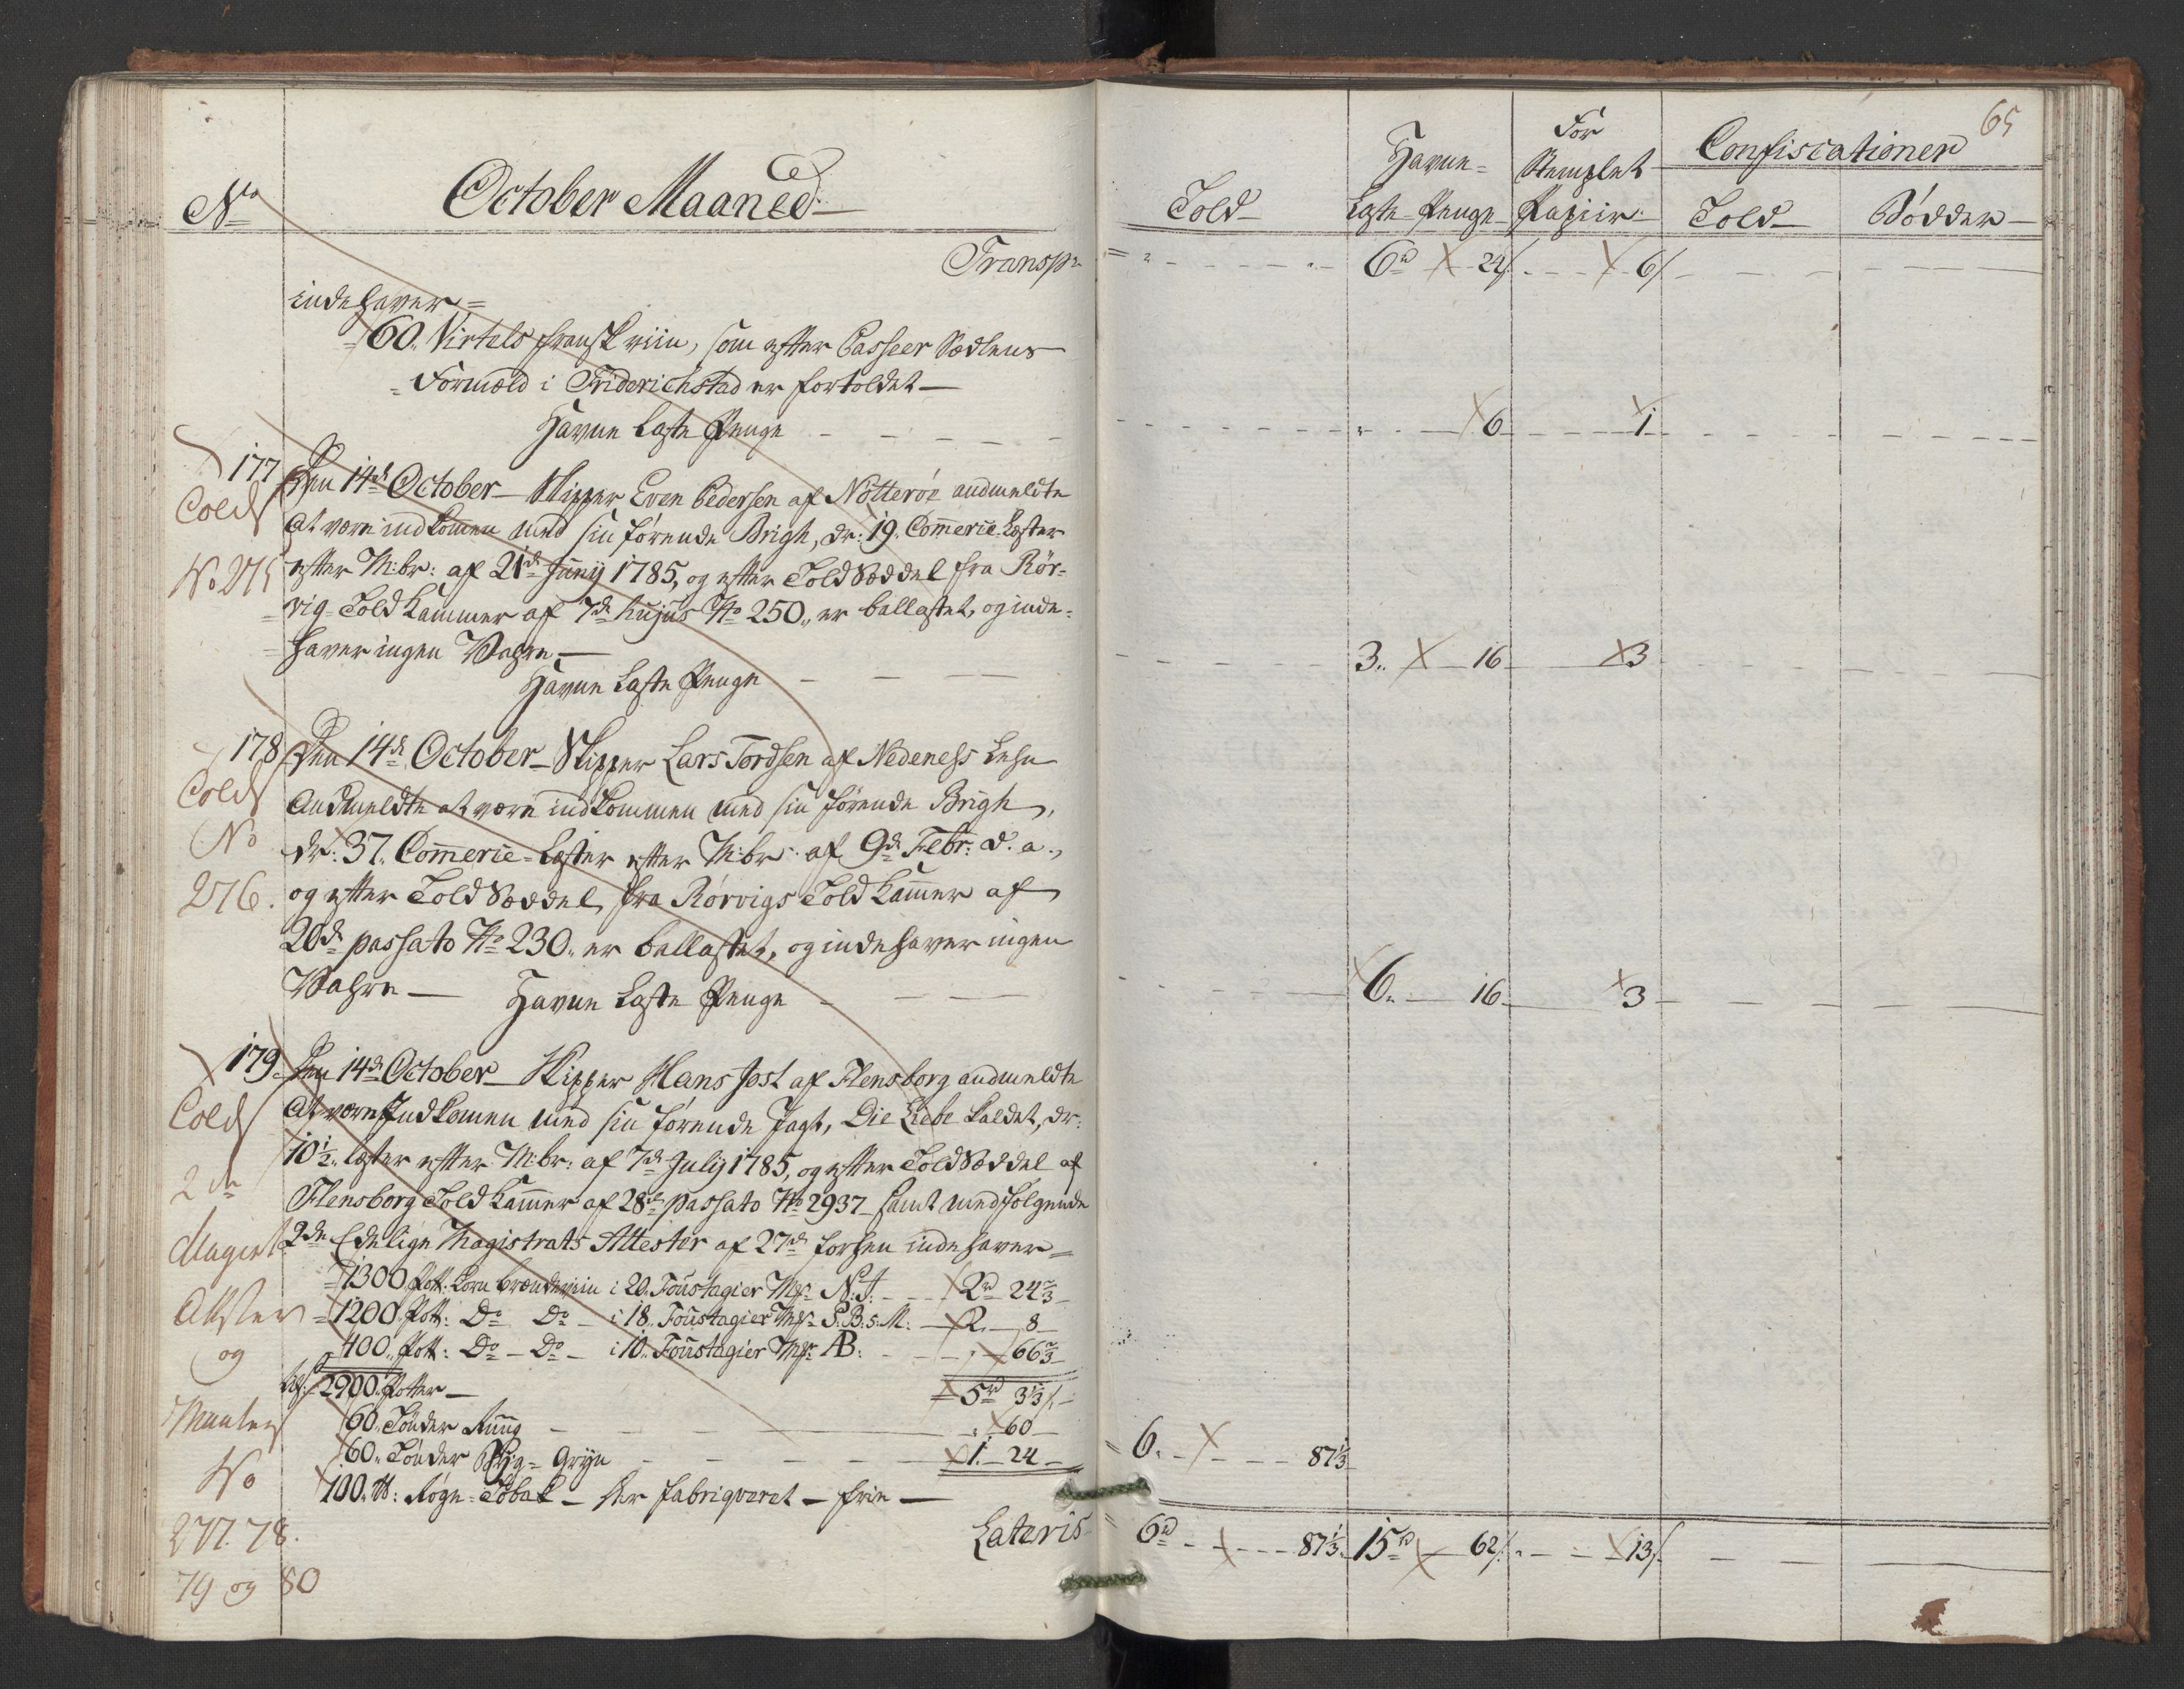 No
October Maaned
Transp:
indehaver
60. Virtels fransk viin, som efter Passeer Sedlens
Formæld i Friderichstad er fortoldet
Havne Læste Penge
177
Den 14de October Skipper Even Pedersen af Nötteröe andmeldte
Told S
At være indkomen med sin förende Brigh, dr: 19. Commercie Læster
No 275
efter M:br: af 21de Junij 1785, og efter Told Seddel fra Rör-
vig Told Kammer af 7de hujus No 250, er ballastet, og inde-
haver ingen Wahre
Havne Læste Penge
178
Den 14de October Skipper Lars Tordsen af Nedeness Lehn
Told S
Andmeldte at være indkommen med sin förende Brigh,
No
dr: 37. Commercie Læster efter M:br: af 9de Febr: d. a.,
276.
og efter Told Seddel, fra Rörvigs Told Kammer af
20de passato No 230. er ballastet, og indehaver ingen
Wahre
Havne Læste Penge
179
Den 14de October Skipper Hans Jost af Flensborg andmeldte
Told S
At være Indkomen med sin förende Jagt, Die Liebe kaldet, dr:
10½. læster efter M:br: af 7de July 1785, og efter Told Seddel af
2de
Flensborg Told Kammer af 28de passato No 2937 samt medfölgende
Magist
2de Edelige Magistrats Attester af 27de forhen indehaver
1300 Pott: Korn brændeviin i 20. Foustagier Mk N. J. 2rd 24⅔
Attster
1200. Pott: Do Do i 18. Foustagier Mk P. B. s. M. 2. 8
og
400. Pott: Do Do i 10. Foustagier Mk AB: 66⅔
2900 Potter 5rd 3⅓ s
60. Tönder Ruug 60
No
60. Tönder Byg Gryn 1. 24
100. lb: Röge Tobak fabriqveret frie
277. 78.
79 og 80
Lateris
65
Told
Havne
Læste Penge
For
Stemplet
Papiir
Confiscationer
Told
Bödder
6rd 24 s 6 s
6 1
3. 16 3
6. 16 3
6. 87⅓
6rd 87⅓ 15rd 62 s 13 s